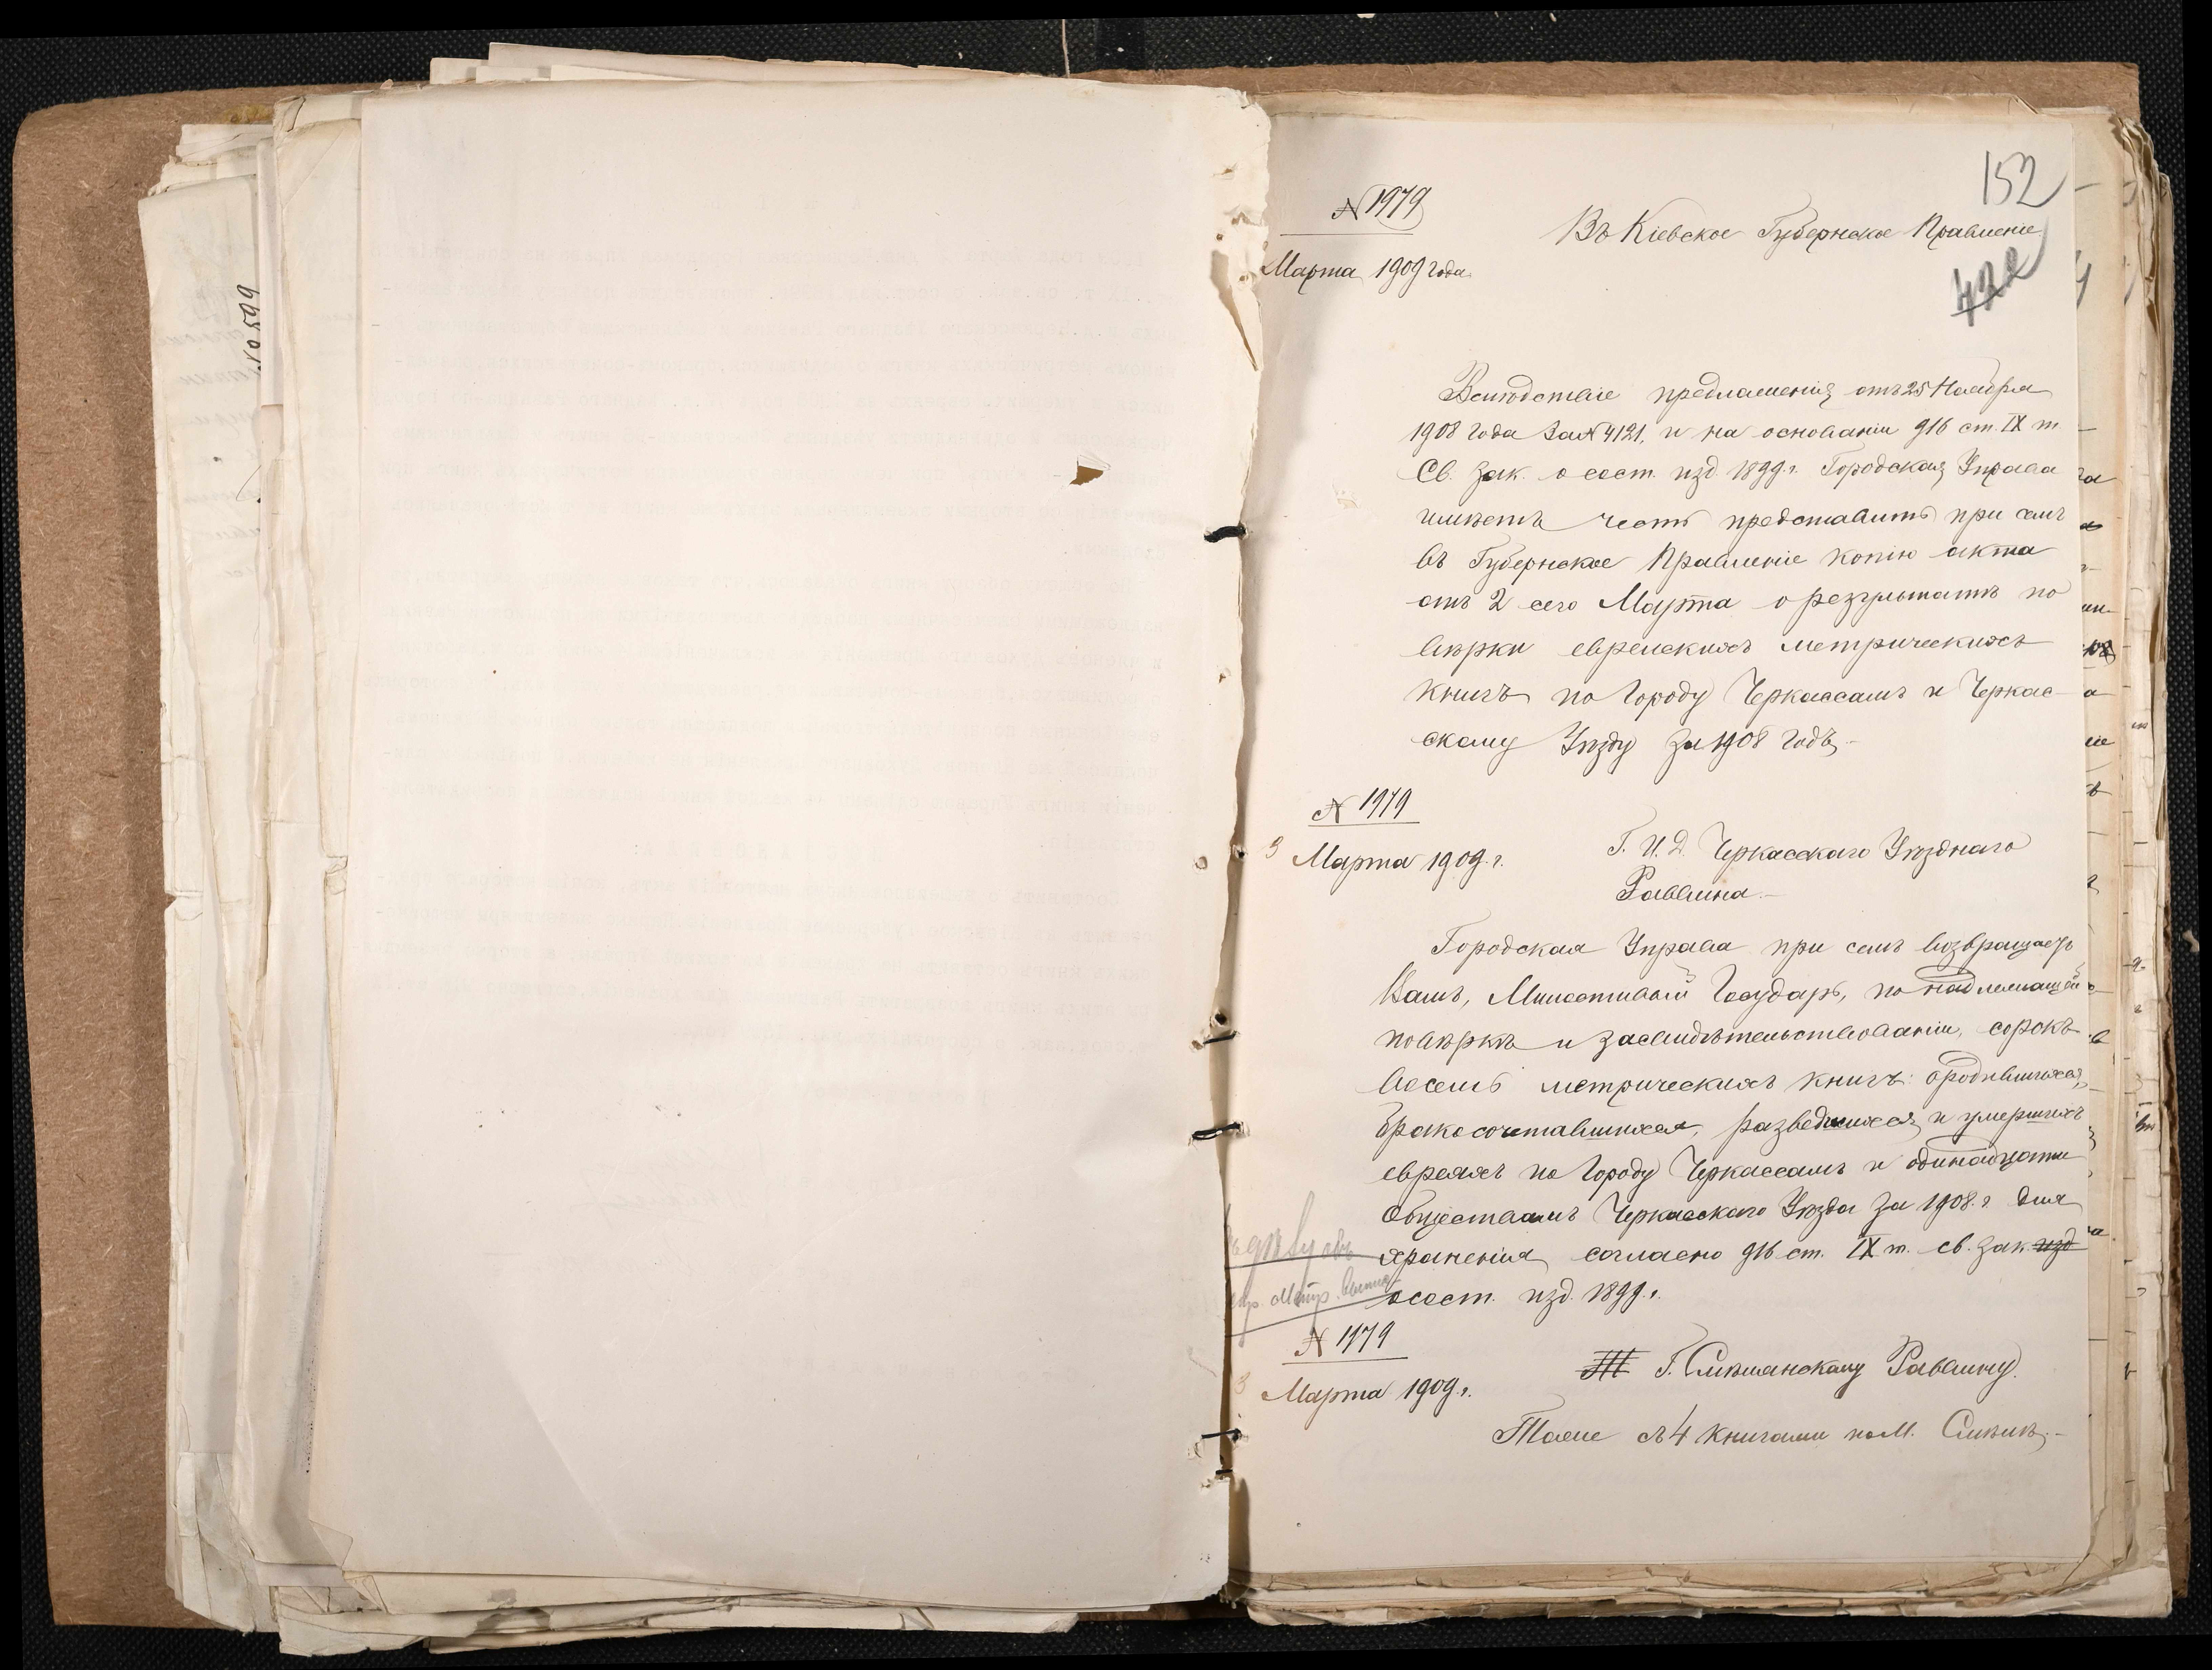 152
N 1979
Въ Кіевское Губернское Правленіе
Марта 1909 года
Вслѣдствіе предложенія отъ 25 Ноября
1908 года за N 4121, и на основаніи 916 ст. IX т.
Св. зак. о сост. изд 1899 г. Городская Управа
имѣетъ честь представить при семъ
въ Губернское Правленіе копію акта
отъ 2 сего Марта о результатѣ по
вѣрки еврейскихъ метрическихъ
книгъ по городу Черкассамъ и Черкас
скому Уѣзду за 1908 годъ.-
N 1979
3 Марта 1909 г.
Г. И. Д. Черкасскаго Уѣзднаго
Раввина.-
Городская Управа при семъ возвращаетъ
Вамъ, Милостивый Государь, по надлежащей
повѣркѣ и засвидѣтельствованіи, сорокъ
восемь метрическихъ книгъ: о родившихся,
бракосочетавшихся, разведшихся и умершихъ
евреяхъ по городу Черкассамъ и одинадцати
обществамъ Черкасскаго Уѣзда за 1908. г. для
храненія согласно 916 ст. IX т. св. зак. изд
о сост. изд. 1899 г.
N 1979
3 Марта 1909 г.
Г. Смѣлянскому Раввину.
Тоже съ 4 книгами по М. Смѣлѣ.-
N 10599